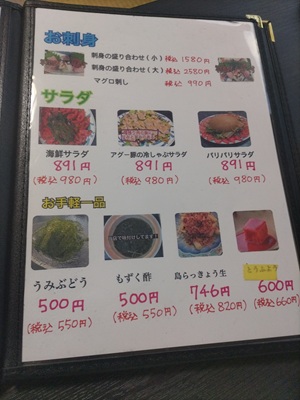 お刺身
刺身の盛り合わせ(小) 税込 1580円
刺身の盛り合わせ(大) 税込 2380円
マグロ刺し 税込 990円
サラダ
海鮮サラダ アグー豚の冷しゃぶサラダ パリパリサラダ
891円 891円 891円
(税込 980円) (税込 980円) (税込 980円)
お手軽一品
うみぶどう もずく酢 島らっきょう生 とうふよう
500円 500円 746円 600円
(税込 550円) (税込 550円) (税込 820円) (税込 660円)